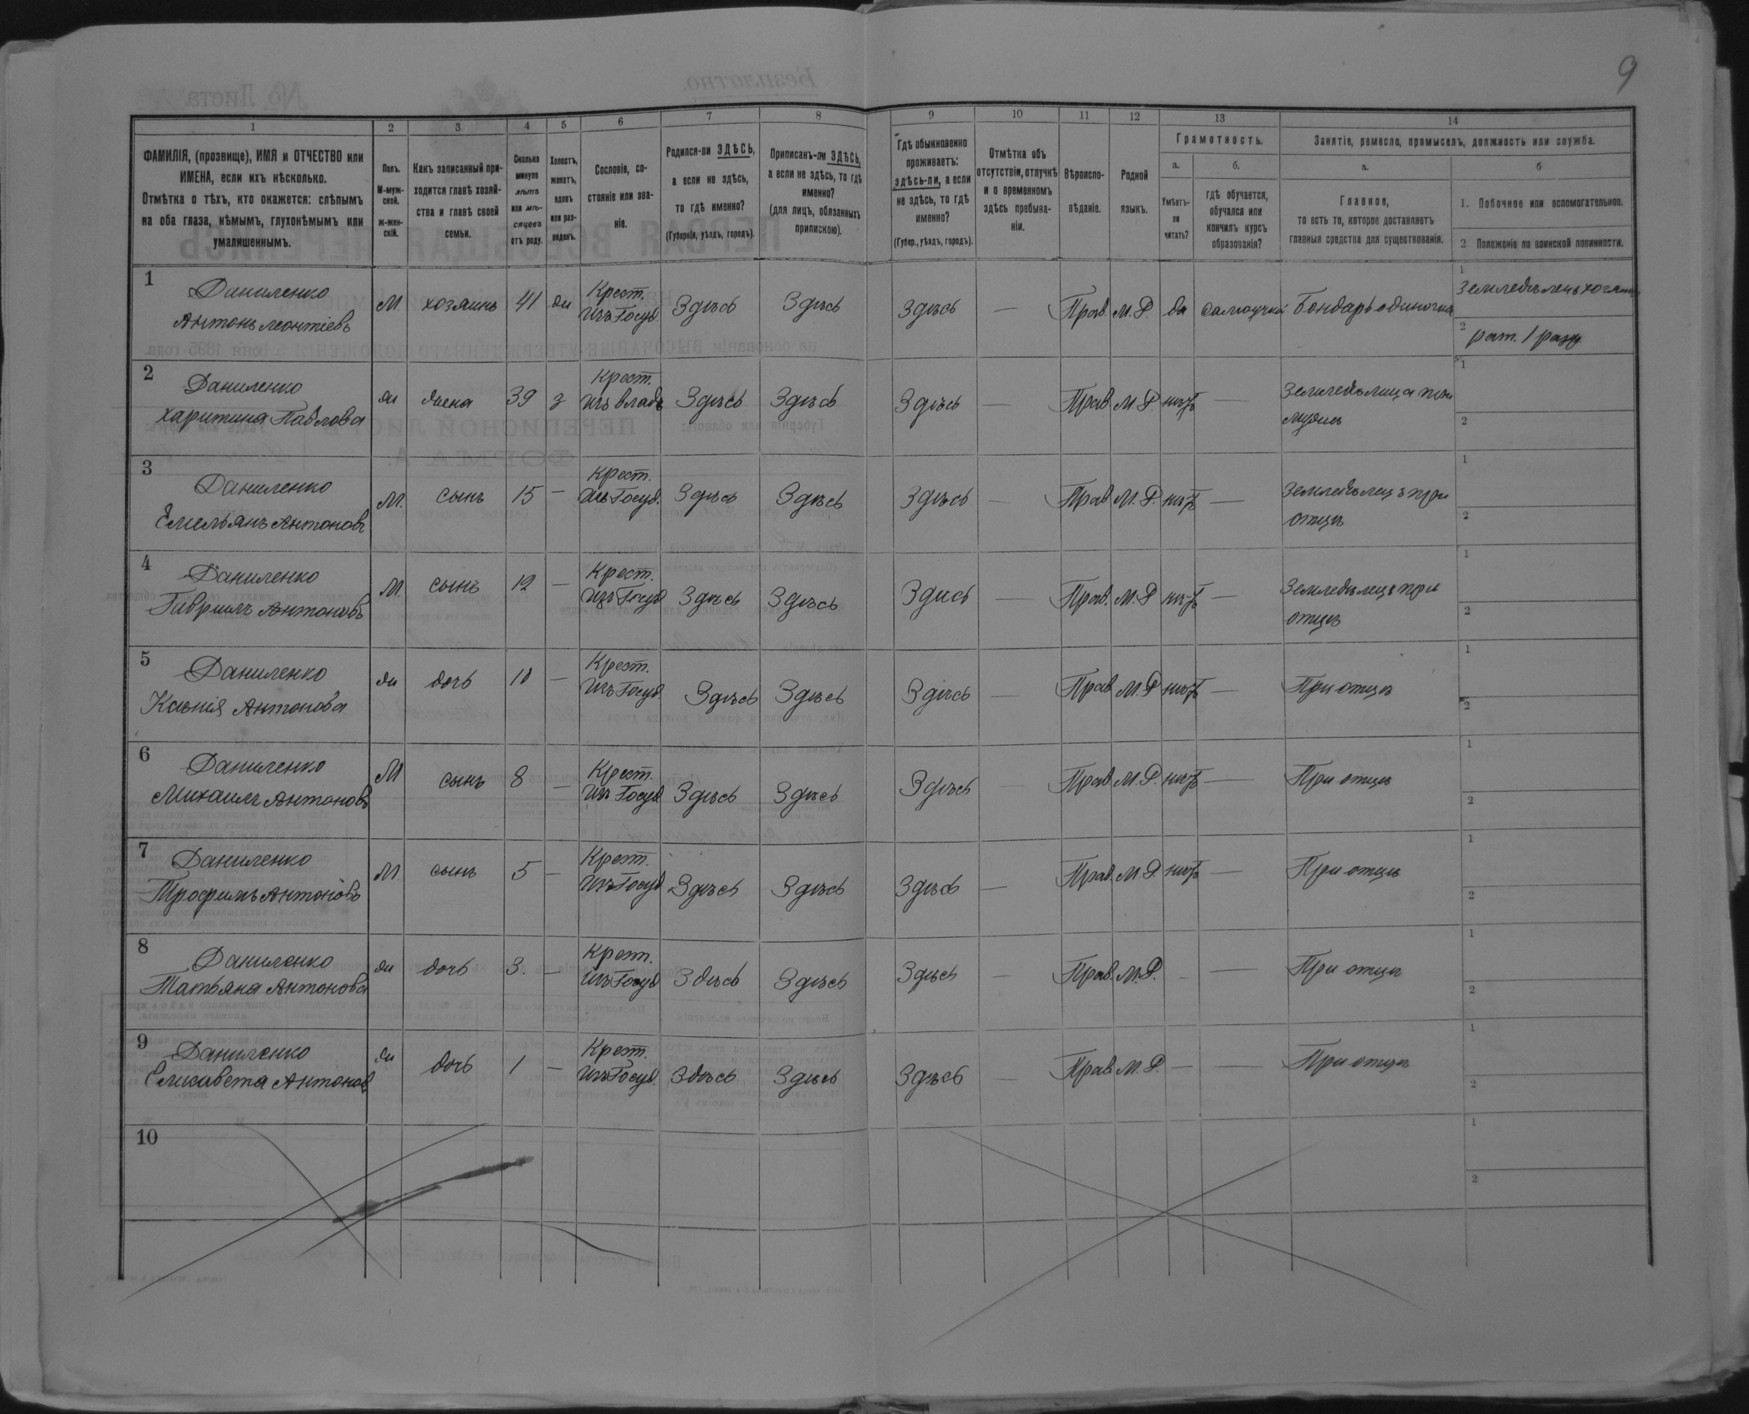 9
1 2 3 4 5 6 7 8 9 10 11 12 13 14
ФАМИЛІЯ, (прозвище), ИМЯ и ОТЧЕСТВО или
ИМЕНА, если ихъ нѣсколько.
Отмѣтка о тѣхъ, кто окажется: слѣпымъ
на оба глаза, нѣмымъ, глухонѣмымъ или
умалишеннымъ.
Полъ.
М-муж-
ской.
Ж-жен-
скій.
Какъ записанный при-
ходится главѣ хозяй-
ства и главѣ своей
семьи.
Сколько
минуло
лѣтъ
или мѣ-
сяцевъ
отъ роду.
Холостъ,
женатъ,
вдовъ
или раз-
веденъ.
Сословіе, со-
стояніе или зва-
ніе.
Родился-ли ЗДѢСЬ,
а если не здѣсь,
то гдѣ именно?
(Губернія, уѣздъ, городъ).
Приписанъ-ли ЗДѢСЬ,
а если не здѣсь, то гдѣ
именно?
(для лицъ, обязанныхъ
припискою).
Гдѣ обыкновенно
проживаетъ:
здѣсь-ли, а если
не здѣсь, то гдѣ
именно?
(Губер., уѣздъ, городъ).
Отмѣтка объ
отсутствіи, отлучкѣ
и о временномъ
здѣсь пребыва-
ніи.
Вѣроиспо-
вѣданіе.
Родной
языкъ.
Грамотность.
а.
Умѣетъ-
ли
читать?
б.
гдѣ обучается,
обучался или
кончилъ курсъ
образованія?
Занятіе, ремесло, промыселъ, должность или служба.
а.
Главное,
то есть то, которое доставляетъ
главныя средства для существованія.
б
1. Побочное или вспомогательное.
2 Положеніе по воинской повинности.
1 Даниленко Антонъ Леонтіевъ М. хозяинъ 41 ж Крест. изъ Госуд Здѣсь Здѣсь Здѣсь — Прав. М.Р. да самоучка Бондарь одиночка
1 Земледѣлецъ хозяинъ
2 рат. 1 разр
2 Даниленко Харитина Павлова ж жена 39 з Крест. изъ влад Здѣсь Здѣсь Здѣсь — Прав М.Р. нѣтъ — Земледѣлица при мужѣ
1
2
3 Даниленко Емельянъ Антоновъ М. сынъ 15 — Крест. изъ Госуд. Здѣсь Здѣсь Здѣсь — Прав М.Р. нѣтъ — Земледѣлецъ при отцѣ
1
2
4 Даниленко Гавриилъ Антоновъ М. сынъ 12 — Крест. изъ Госуд Здѣсь Здѣсь Здѣсь — Прав. М.Р нѣтъ — Земледѣлецъ при отцѣ
1
2
5 Даниленко Ксенія Антонова ж дочь 10 — Крест. изъ Госуд Здѣсь Здѣсь Здѣсь — Прав М.Р нѣтъ — При отцѣ
1
2
6 Даниленко Михаилъ Антоновъ М сынъ 8 — Крест. изъ Госуд Здѣсь Здѣсь Здѣсь — Прав М.Р. нѣтъ — При отцѣ
1
2
7 Даниленко Трофимъ Антоновъ М сынъ 5 — Крест. изъ Госуд Здѣсь Здѣсь Здѣсь — Прав. М.Р нѣтъ — При отцѣ
1
2
8 Даниленко Татьяна Антонова ж дочь 3. — Крест. изъ Госуд Здѣсь Здѣсь Здѣсь — Прав. М.Р. - — При отцѣ
1
2
9 Даниленко Елисавета Антонов ж дочь 1 — Крест. изъ Госуд. Здѣсь Здѣсь Здѣсь — Прав М.Р. — — При отцѣ
1
2
10
1
2